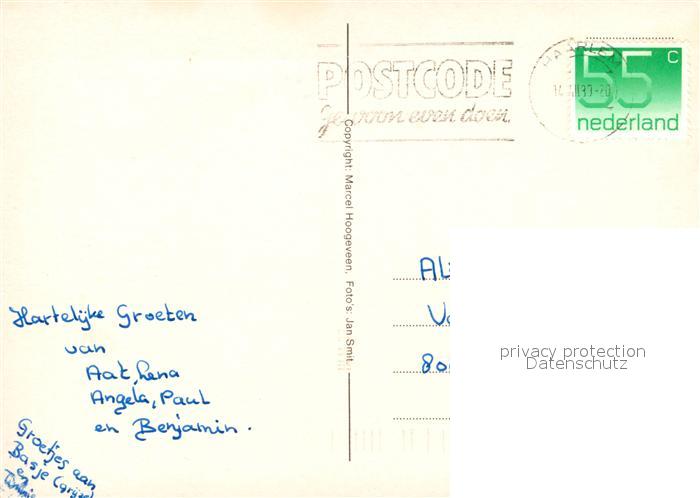 POSTCODE
Gewoon even doen.
HAARLEM
55 c
nederland
Copyright: Marcel Hoogeveen, Foto's: Jan Smit.
Hartelijke Groeten
van
Aat, Lena
Angela, Paul
en Benjamin.
Groetjes aan
Basje (grijze)
en
privacy protection
Datenschutz